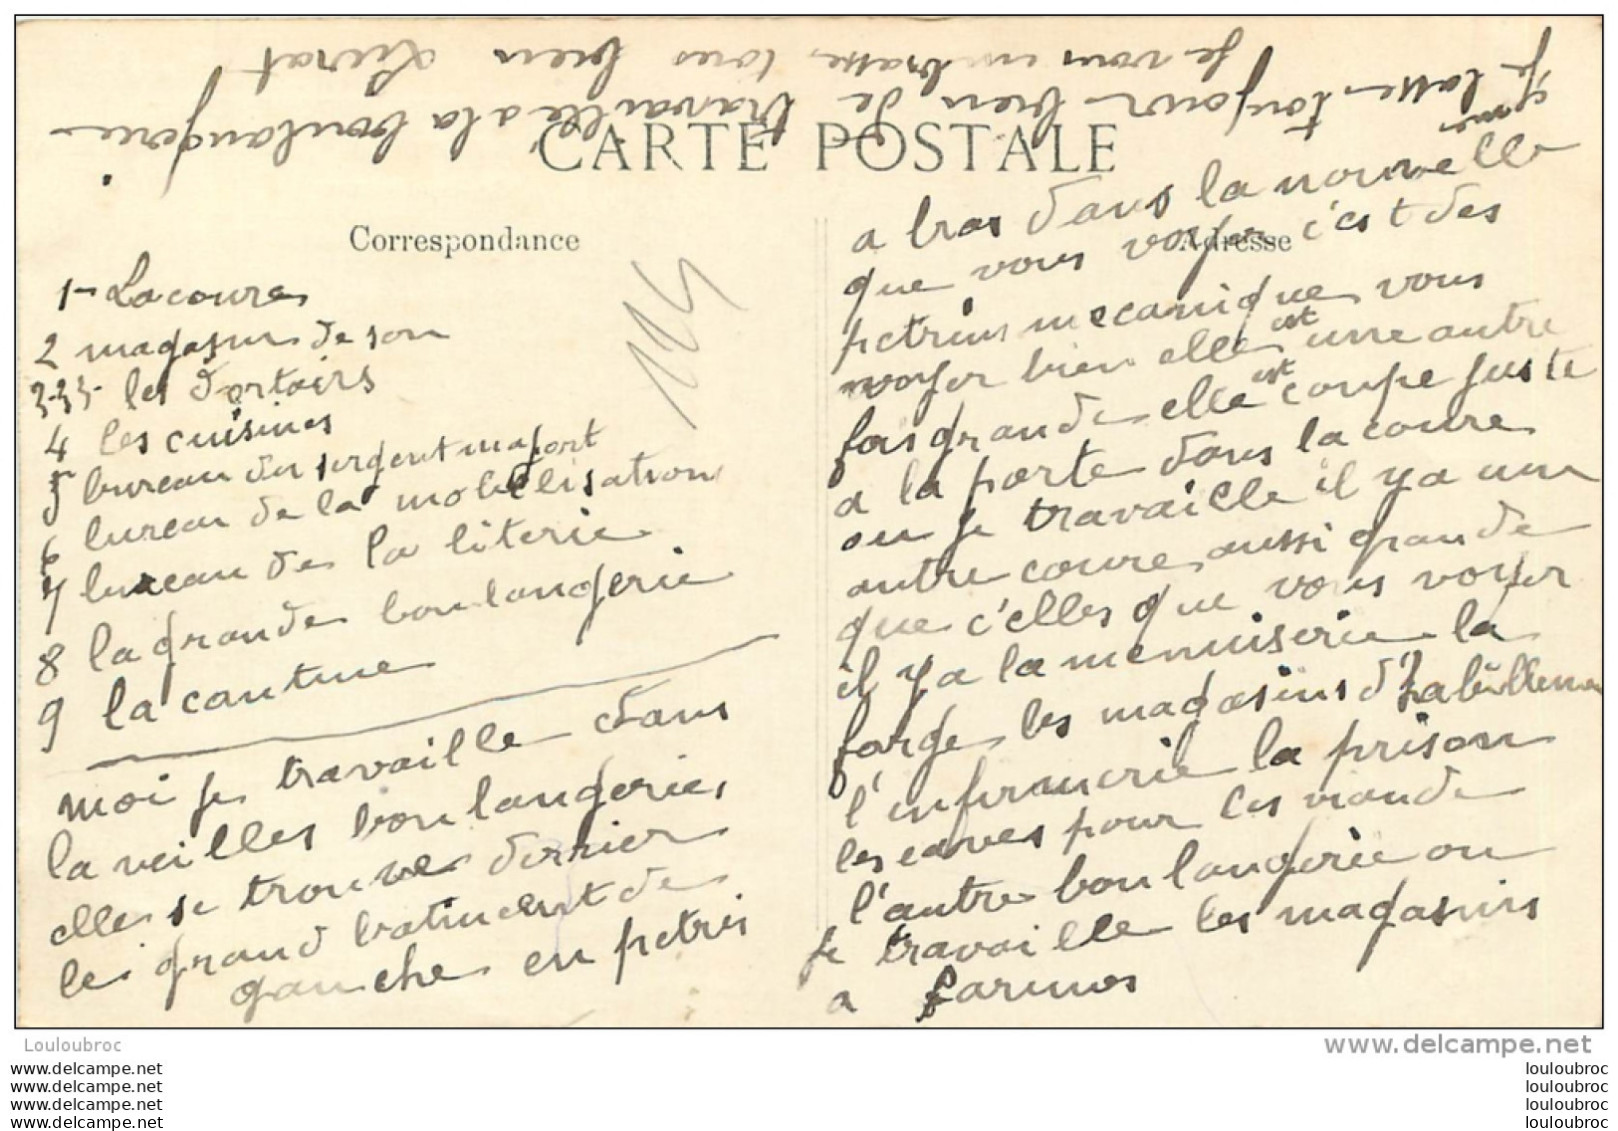 CARTE POSTALE
Correspondance
Adresse
1- La coure
2 magasin de son
3-3-3- les dortoirs
4 les cuisines
5 bureau du sergent majort
6 bureau de la mobélisation
7 bureau de la literie
8 la grande boulangerie
9 la cantine
moi je travaille dans
la veilles boulangeries
elle se trouve derrier
le grand batiment de
gauche en petris
a bras dans la nouvelle
que vous voyer c'est des
petrins mecanique vous
voyer bien elle est une autre
fois grande elle est coupe juste
a la porte dans la coure
ou je travaille il y a une
autre coure aussi grande
que c'elles que vous voyer
il y a la menuiserie la
forge les magasins d'habillement
l'infirmerie la prison
les caves pour les viande
l'autre boulangerie ou
je travaille les magasins
a farines
toujour bien de travaille a la boulangerie
je vous embrasse tous bien
115
Louloubroc
www.delcampe.net
www.delcampe.net
www.delcampe.net
www.delcampe.net
www.delcampe.net
louloubroc
louloubroc
louloubroc
louloubroc